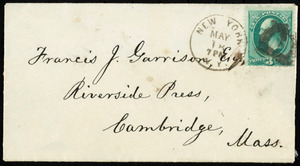 NEW YORK
MAY
18
7 PM
N.Y.
Francis J. Garrison Esq.
Riverside Press,
Cambridge,
Mass.